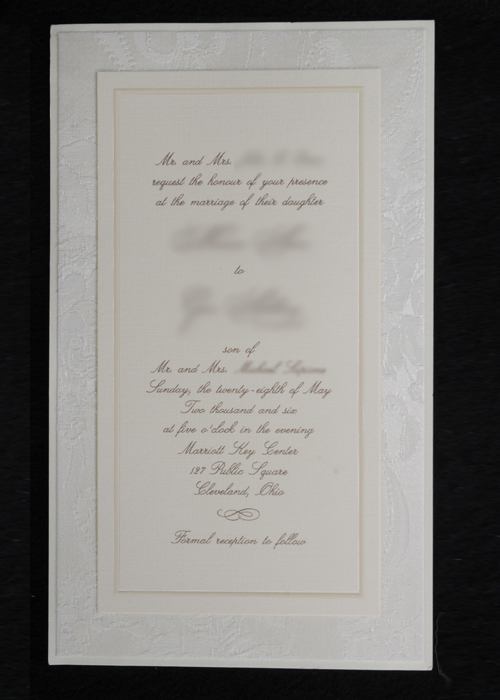 Mr. and Mrs.
request the honour of your presence
at the marriage of their daughter
to
son of
Mr. and Mrs.
Sunday, the twenty-eighth of May
Two thousand and six
at five o'clock in the evening
Marriott Key Center
127 Public Square
Cleveland, Ohio
Formal reception to follow